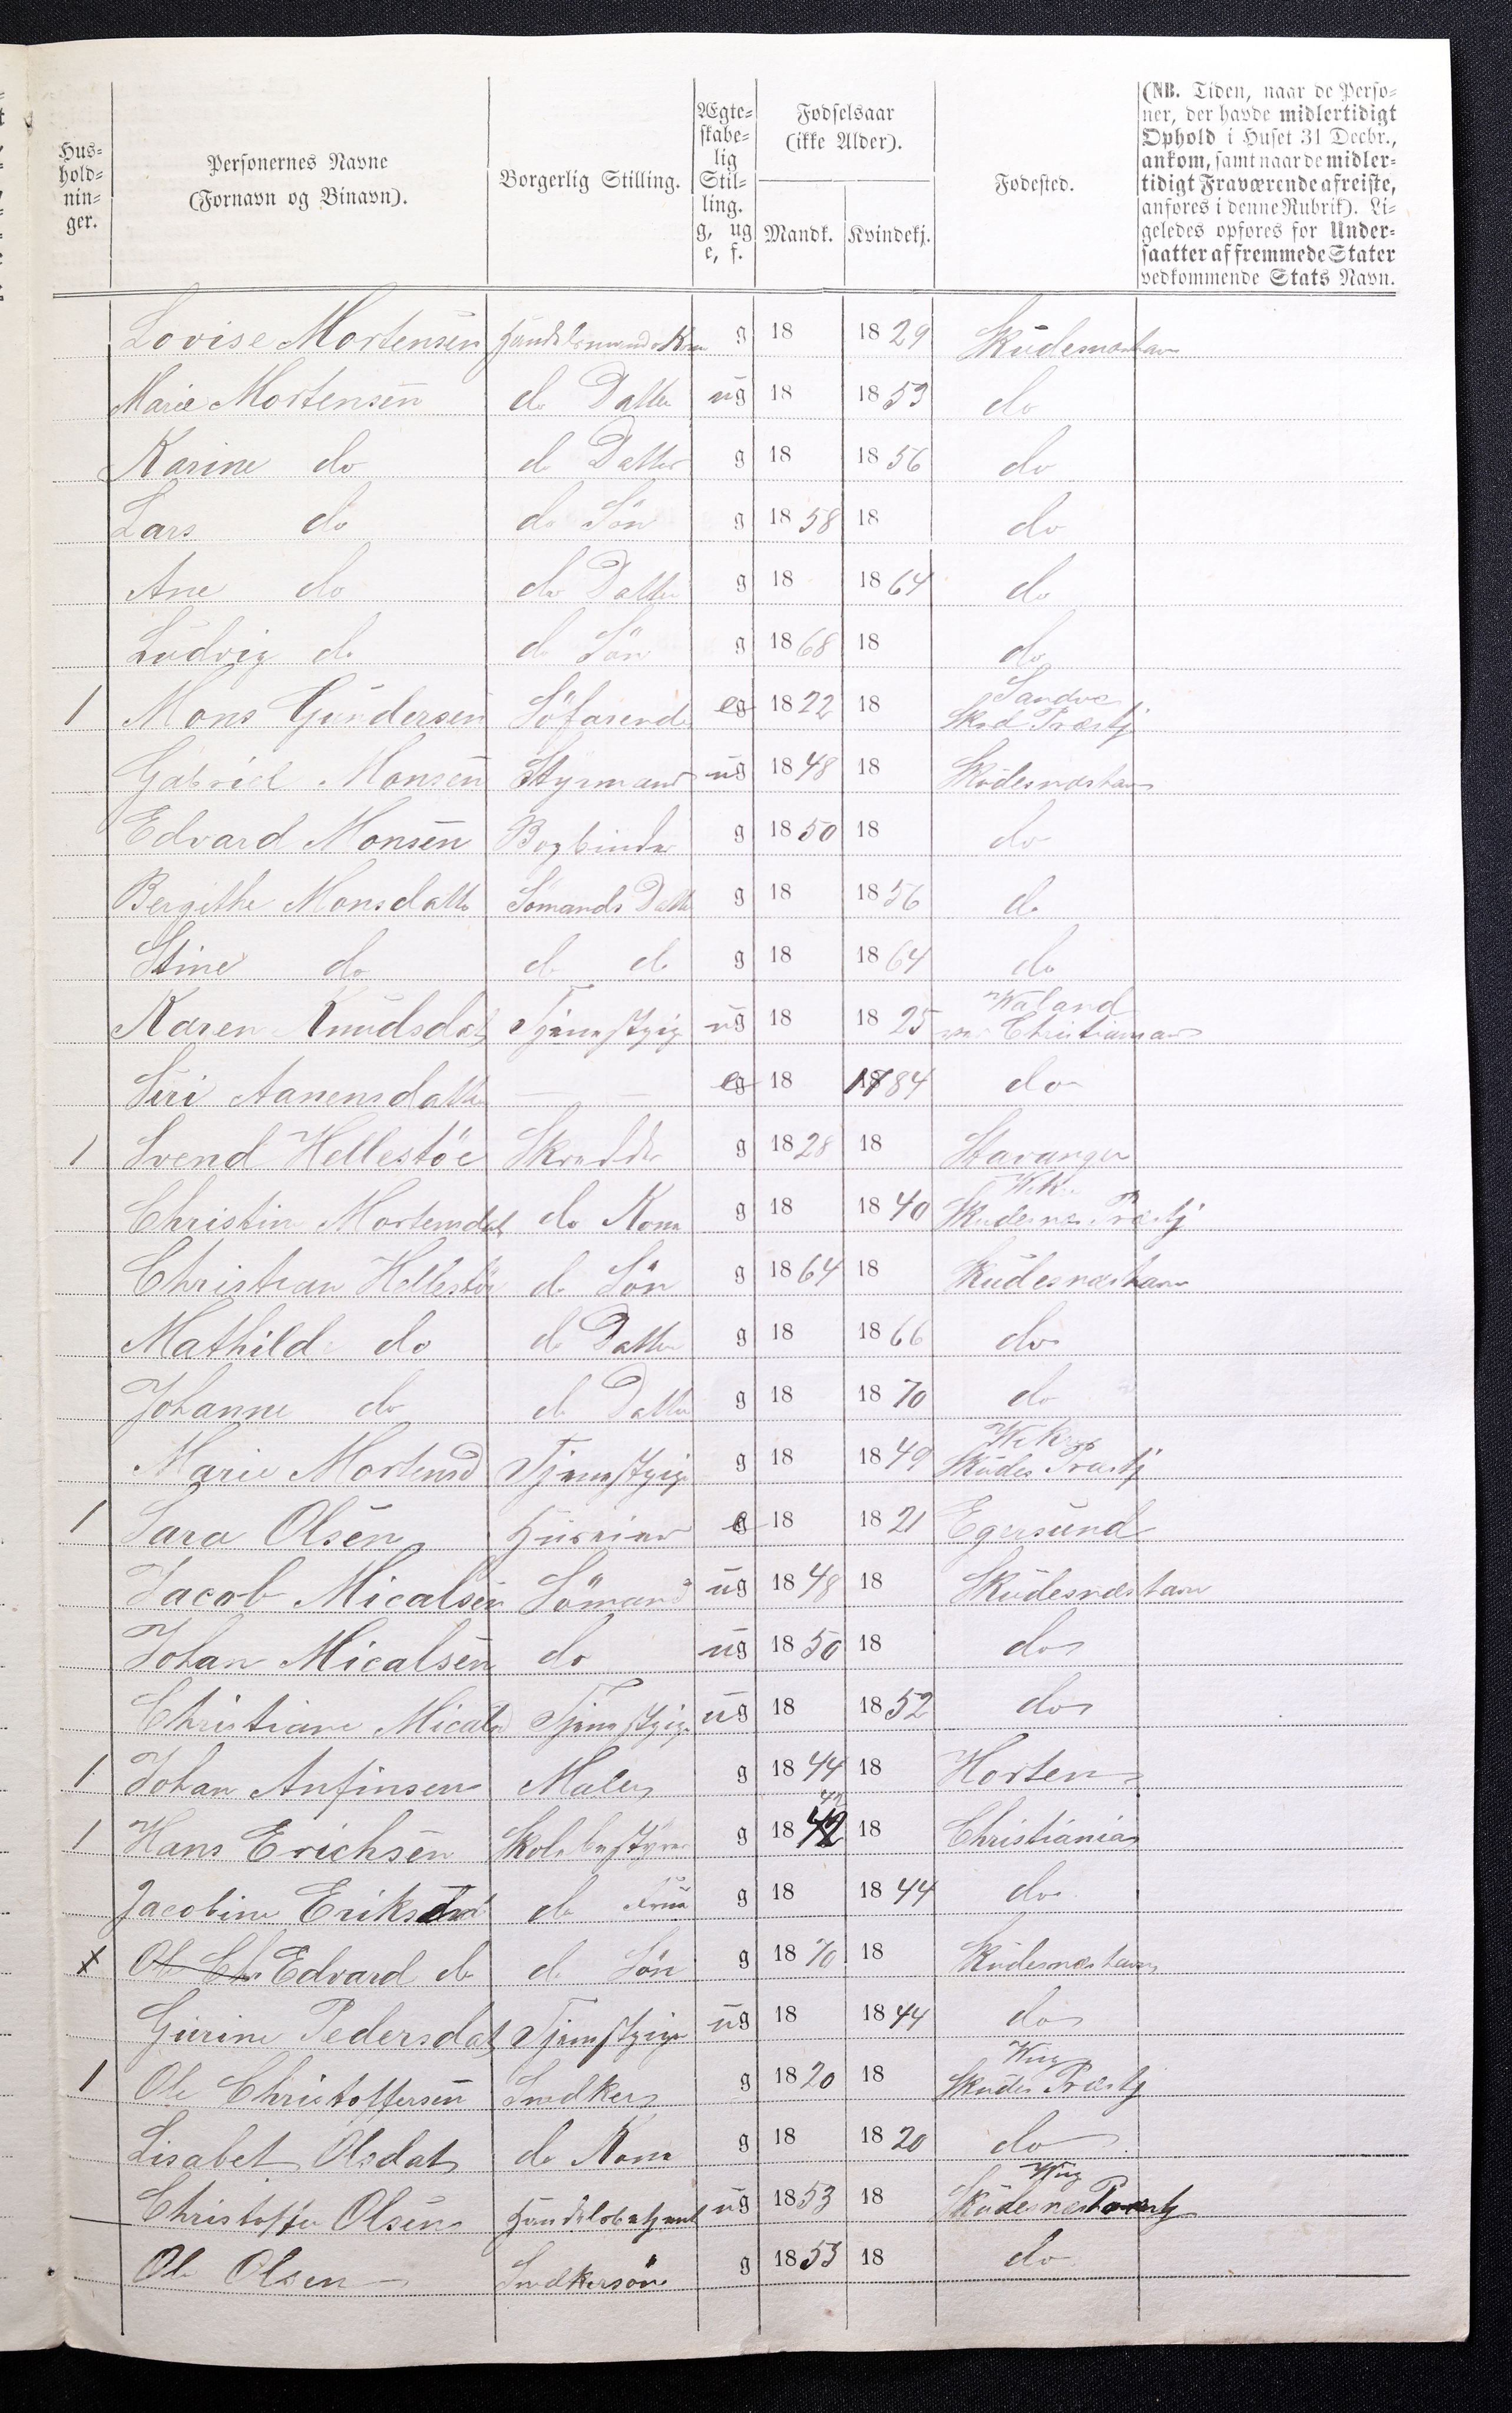 Hus-
hold-
nin-
ger.
Personernes Navne
(Fornavn og Binavn).
Borgerlig Stilling.
Ægte-
skabe-
lig
Stil-
ling.
g, ug
e, f.
Fødselsaar
(ikke Alder).
Mandk. Kvindekj.
Fødested.
(NB. Tiden, naar de Perso-
ner, der havde midlertidigt
Ophold i Huset 31 Decbr.,
ankom, samt naar de midler-
tidigt Fraværende afreiste,
anføres i denne Rubrik). Li-
geledes opføres for Under-
saatter af fremmede Stater
vedkommende Stats Navn.
Lovise Mortensen Handelsmands Kone g 18 1829 Skudesnæshavn
Marie Mortensen do Datter ug 18 1859 do
Karine do do Datter g 18 1856 do
Lars do do Sön g 1858 18 do
Ane do do Datter g 18 1864 do
Ludvig do do Sön g 1868 18 do
1 Mons Gundersen Söfarende e 1822 18 Sandve
Skud Præstgj
Gabriel Monsen Styrmand ug 1848 18 Skudesnæshavn
Edvard Monsen Bogbinder g 1850 18 do
Bergithe Monsdatter Sömands Datter g 18 1856 do
Stine do do do g 18 1864 do
Karen Knudsdat Tjenestpige ug 18 1825 Waland
Christiansand
Siri Aanensdatter — — e 18 1784 do
1 Svend Hellestöe Skrædder g 1828 18 Stavanger
Christine Mortensdat do Kone g 18 1840
Skudesnæs Præstgj
Christian Hellestöe do Sön g 1864 18 Skudesnæshavn
Mathilde do do Datter g 18 1866 do
Johanne do do Datter g 18 1870 do
Marie Mortensd Tjenestpige g 18 1849
Skudes Præstgj
1 Sara Olsen Huseier e 18 1821 Egersund
Jacob Micalsen Sömand ug 1848 18 Skudesnæshavn
Johan Micalsen do ug 1850 18 do
Christiane Micalsd Tjenestpige ug 18 1852 do
1 Johan Anfinsen Maler g 1844 18 Horten
1 Hans Erichsen Skolebestyrer g 1842 18 Christiania
42
Jacobine Eriksen do Frue g 18 1844 do
x Ole Chr Edvard do do Sön g 1870 18 Skudesnæshavn
Gurine Pedersdat Tjenestpige ug 18 1844 do
1 Ole Christoffersen Snedker g 1820 18
Skudes Præstgj
Lisabet Olsdat do Kone g 18 1820 do
Christoffer Olsen Handelsbetjent ug 1853 18
Skudesnæs Præstgj
Ole Olsen Snedkersön g 1853 18 do